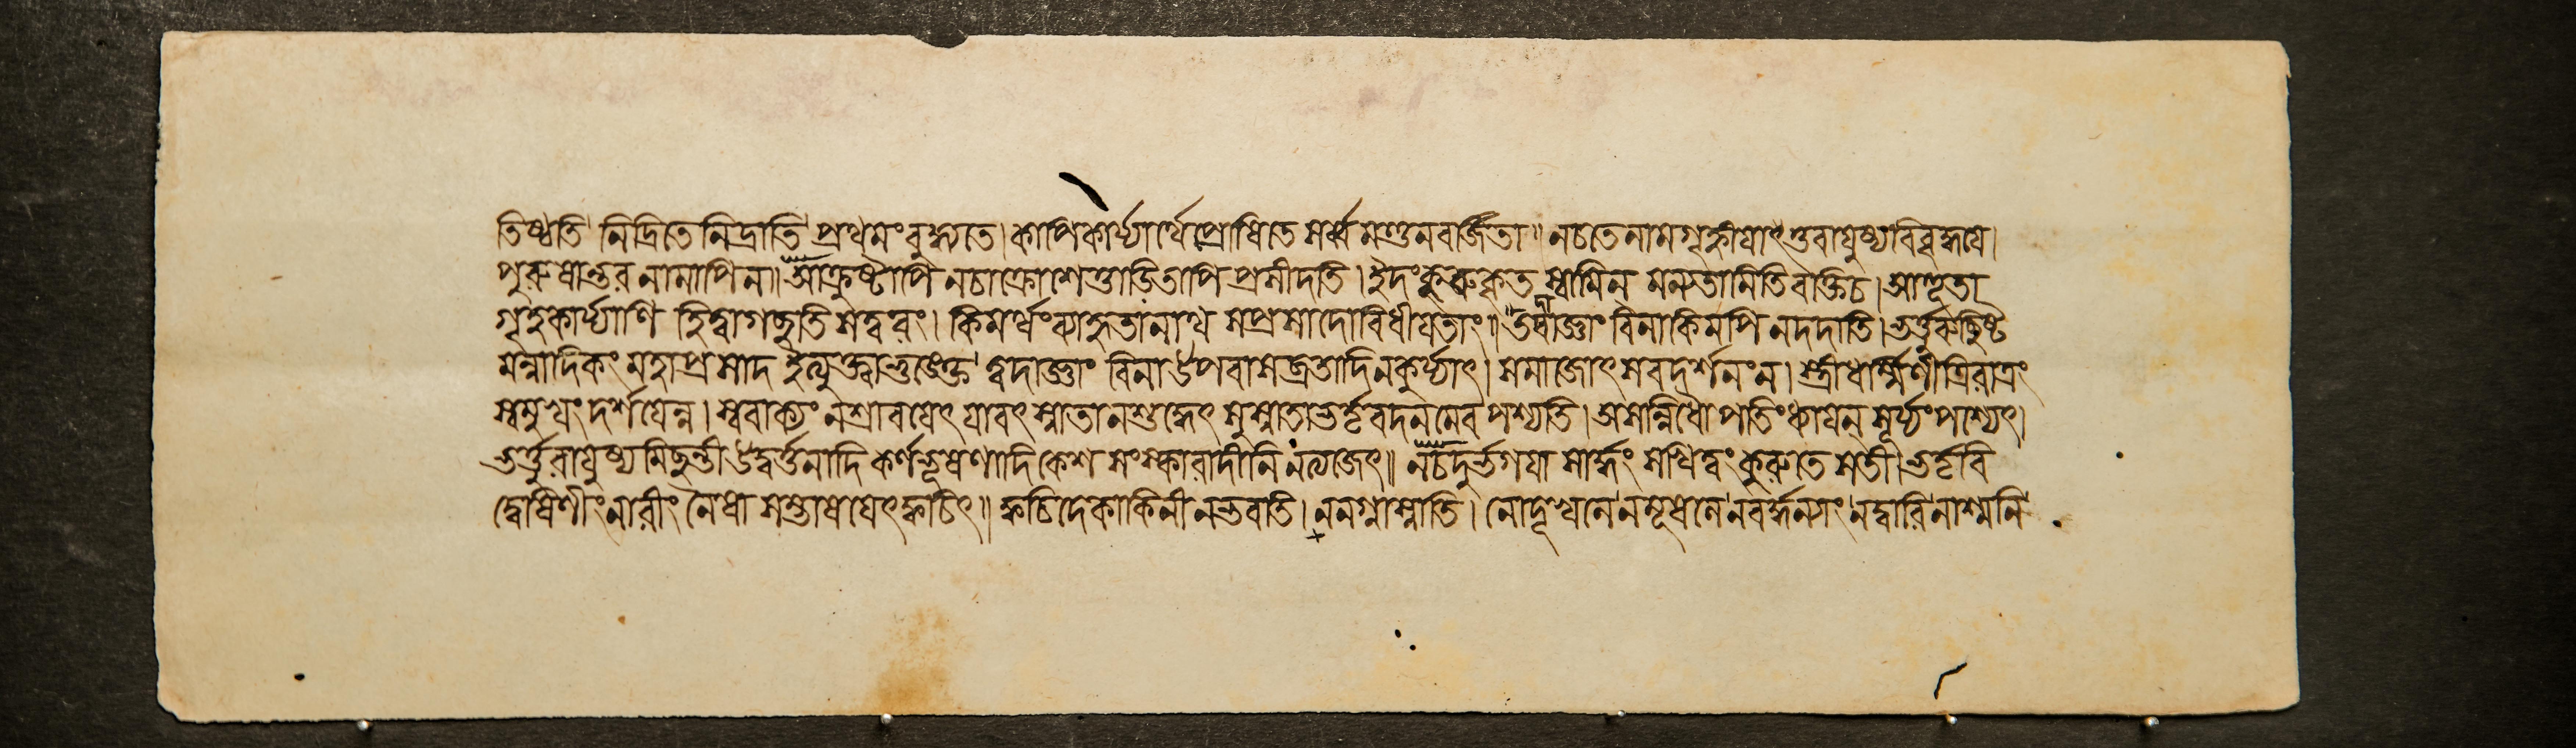 তিষ্ঠতি নিদ্রিতে নিদ্রাতি প্রথমং বুদ্ধ্যতে। কাপি কার্য্যার্থে প্রোষিতে সর্ব্বমণ্ডনবর্জিতা॥ নচতে নাম গৃহ্নীযাৎ তুবাযুষ্যবিবৃদ্ধযে।
পুরুষান্তর নামাপি ন॥ আক্রুষ্টাপি নচাক্রোশেত্তাডিতাপি প্রসীদতি। ইদং কুরুকৃত স্বামিন্ মন্যতামিতি বক্তি চ। আহূতা
গৃহকার্য্যাণি হিত্বাগচ্ছতি সত্বরং। কিমর্থং ব্যাহৃতা নাথ সপ্রসাদো বিধীযতাং॥ তদাজ্ঞাং বিনা কিমপি ন দদাতি। ভর্তুরুচ্ছিষ্ট
মন্নাদিকং মহাপ্রসাদ ইত্যুক্ত্বা ভুঙ্ক্তে ত্বদাজ্ঞাং বিনা উপবাসব্রতাদি ন কুর্য্যাৎ। সমাজোৎসবদর্শনং ন। স্ত্রীধর্ম্মিণী ত্রিরাত্রং
স্বমুখং দর্শযেন্ন। স্ববাক্যং ন শ্রাবযেৎ যাবৎ স্নাতা ন শুদ্ধেৎ সুস্নাতা ভর্তৃবদনমেব পশ্যতি। অসান্নিধৌ পতিং ধ্যাযেন্ সূর্য্যং পশ্যেৎ।
ভর্তুরাযুষ্যমিচ্ছন্তী উদ্বর্তনাদি কর্ণভূষণাদি কেশ সংস্কারাদীনি ন ত্যজেৎ॥ নচ দুর্ভগযা সার্দ্ধং সখিত্বং কুরুতে সতী। ভর্তৃবি
দ্বেষিণীং নারীং নৈষা সম্ভাষযেৎ ক্বচিৎ॥ ক্বচিদেকাকিনী ন ভবতি। ন নগ্না স্নাতি। নোদূখলে ন মূষলে ন বর্দ্ধন্যাং ন দ্বারি নাশ্মনি